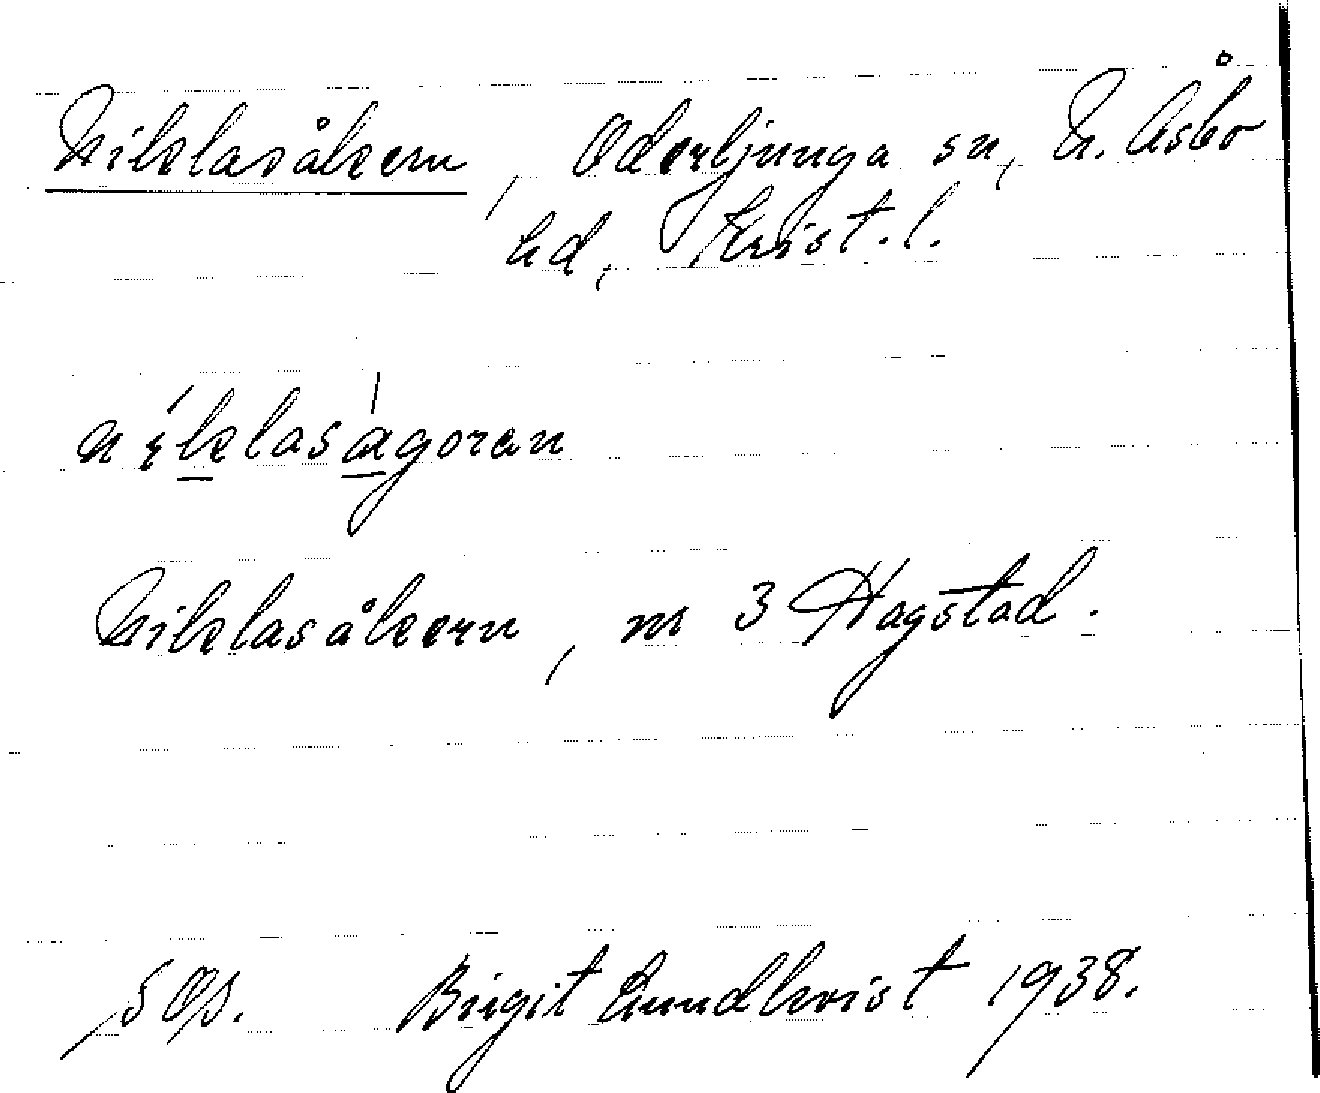 Niklasåkern, Oderljunga sn, N. Åsbo
hd, Krist. l.
níklasàgoran
Niklasåkern, nr 3 Hagstad.
Birgit Lundkvist 1938.